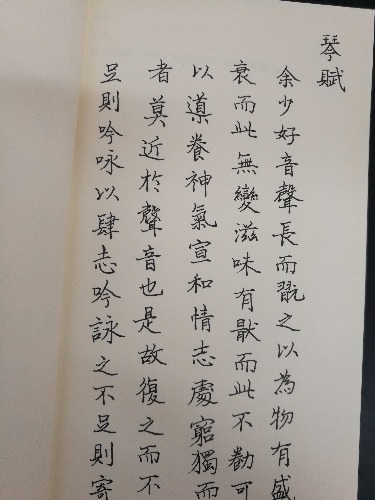 琴賦
余少好音聲長而翫之以為物有盛
衰而此無變滋味有猒而此不勌可
以導養神氣宣和情志處窮獨而
者莫近於聲音也是故復之而不
足則吟咏以肆志吟詠之不足則寄